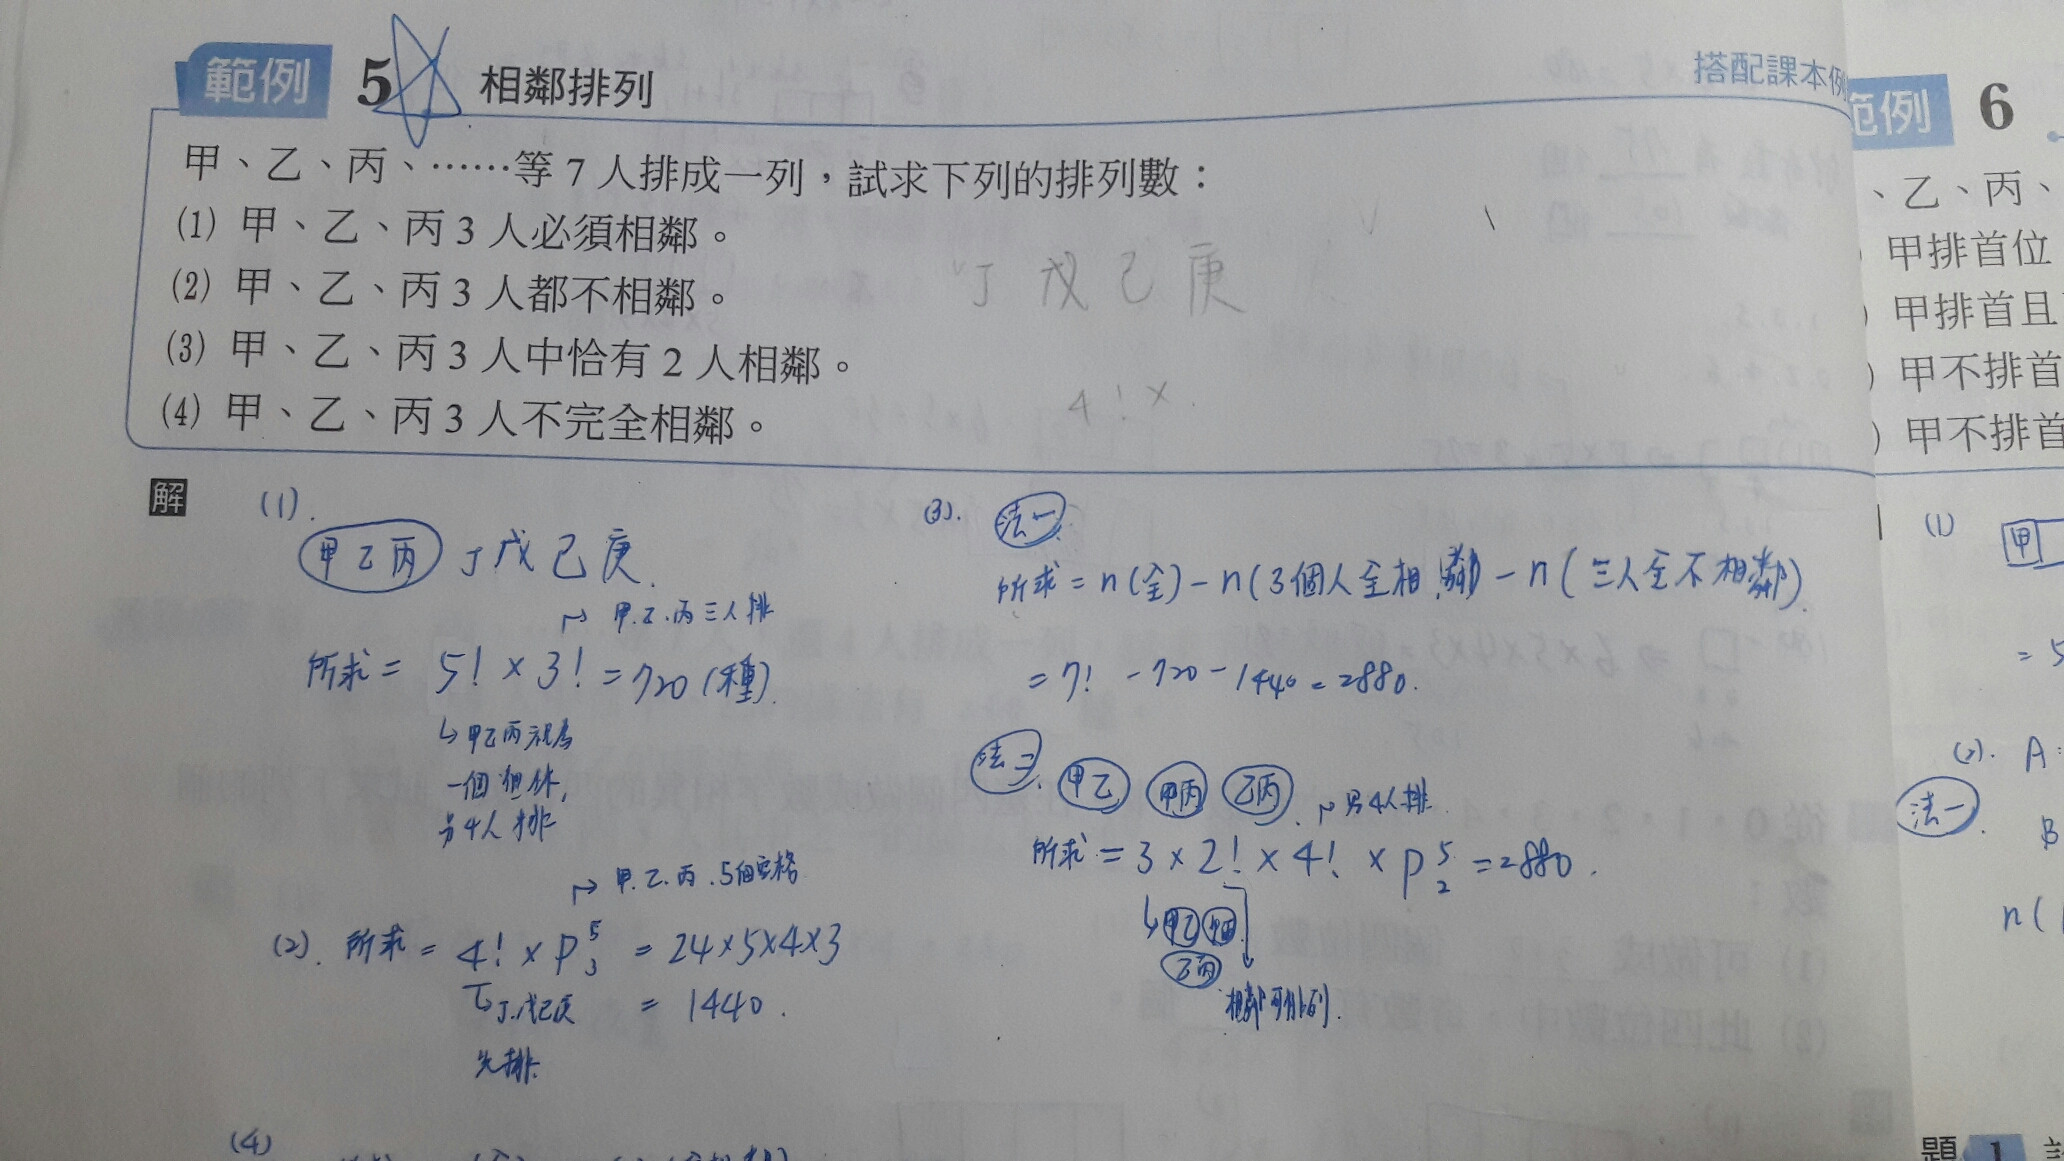 範例 5 相鄰排列
搭配課本例
甲、乙、丙、……等 7 人排成一列，試求下列的排列數：
(1) 甲、乙、丙 3 人必須相鄰。
(2) 甲、乙、丙 3 人都不相鄰。
(3) 甲、乙、丙 3 人中恰有 2 人相鄰。
(4) 甲、乙、丙 3 人不完全相鄰。
丁 戊 己 庚
4! ×
解
(1).
甲乙丙 丁戊己庚.
↱ 甲.乙.丙三人排
所求 = 5! × 3! = 720 (種).
↳ 甲乙丙視為
一個
另4人排
↱ 甲.乙.丙.5個空格
(2). 所求 = 4! × P⁵₃ = 24×5×4×3
丁.戊己庚
先排.
= 1440.
(3). 法一.
所求 = n(全) - n(3個人全相鄰) - n(三人全不相鄰).
= 7! - 720 - 1440 = 2880.
法二. 甲乙 甲丙 乙丙. ↱ 另4人排.
所求 = 3 × 2! × 4! × P⁵₂ = 2880.
↳ 甲乙 甲丙
乙丙
相鄰可排列.
(4)
範例 6
、乙、丙、
甲排首位
甲排首且
甲不排首
甲不排首
(1) 甲
= 5
(2). A:
法一.
B
n(
題 1